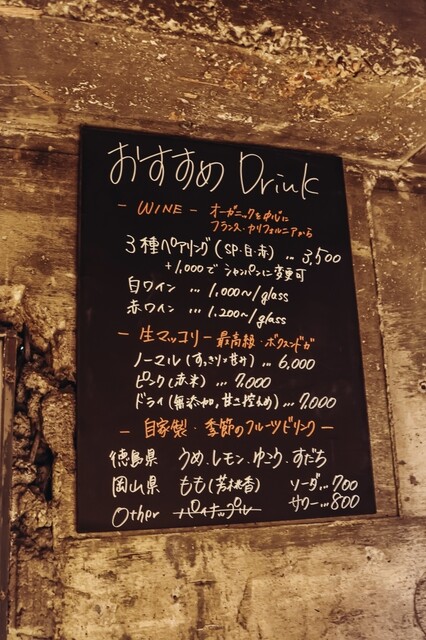 おすすめ Drink
- WINE - オーガニックを中心に
フランス・カリフォルニアから
3種ペアリング (SP・白・赤) … 3,500
+1,000で シャンパンに変更可
白ワイン … 1,000~/glass
赤ワイン … 1,200~/glass
- 生マッコリ - 最高級・ボクスンドガ
ノーマル (すっきり甘み) … 6,000
ピンク (赤米) … 7,000
ドライ (無添加, 甘さ控えめ) … 7,000
- 自家製・季節のフルーツドリンク -
徳島県 うめ、レモン、ゆこう、すだち
岡山県 もも ソーダ…700
Other パイナップル サワー…800